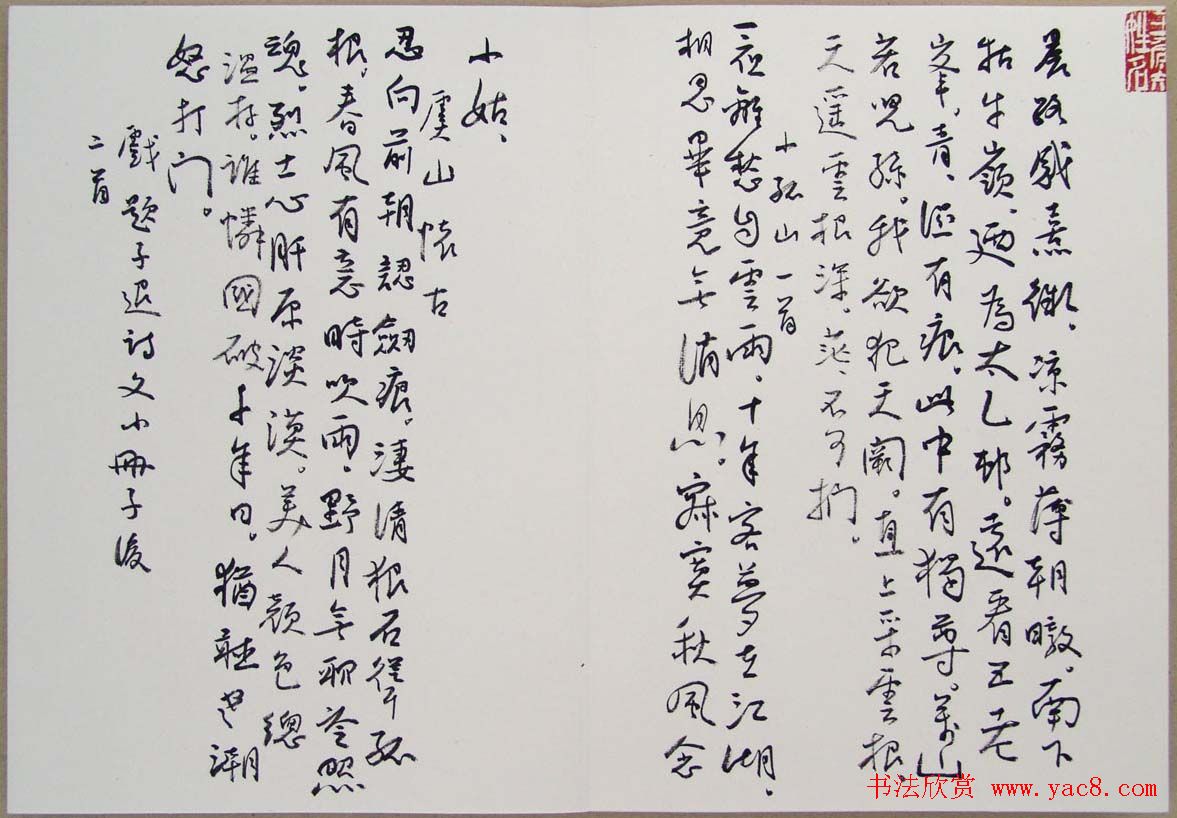 晨路戴熹微、凉霧薄朝暾。南下
牯牛嶺、迺為太乙邨。遠看五老
峯、青、逕有痕。此中有獨尊。萬山
若兒孫。我欲犯天閽。直上采雲根、
天遥雲根深。茫、不可捫。
小孤山一首
一夜離愁自雲雨、十年客夢在江湖、
相思畢竟無消息。寂寞秋風念
小姑、
虞山懷古
忍向前朝認劒痕。淒清狠石孤
根。春風有意時吹雨、野月無聊照
魂。烈士心肝原淡漠。美人顏色總
温存。誰憐國破千年日。猶聽老潮
怒打门。
戲題子退詩文小冊子後
二首
书法欣赏 www.yac8.com